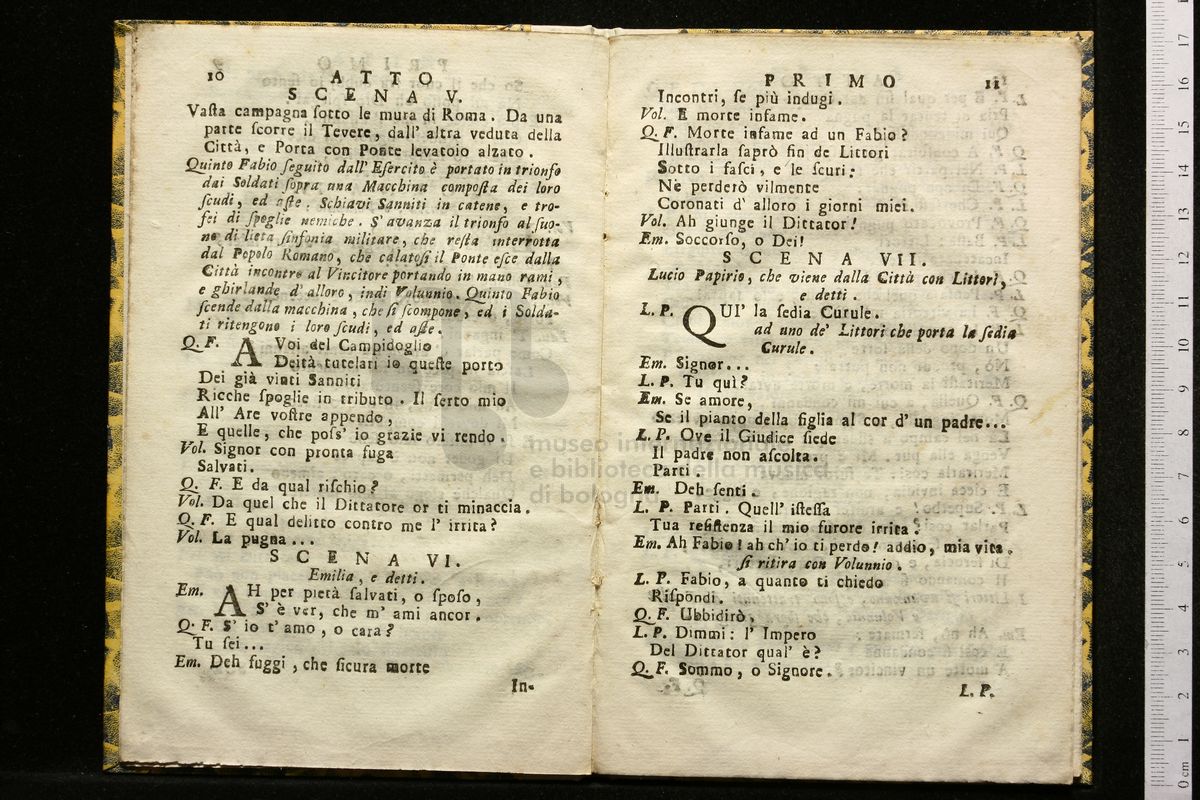 10 ATTO
SCENA V.
Vaſta campagna ſotto le mura di Roma. Da una
parte ſcorre il Tevere, dall' altra veduta della
Città, e Porta con Ponte levatoio alzato.
Quinto Fabio ſeguito dall' Eſercito è portato in trionfo
dai Soldati ſopra una Macchina compoſta dei loro
ſcudi, ed aſte. Schiavi Sanniti in catene, e tro-
fei di ſpoglie nemiche. S' avanza il trionfo al ſuo-
no di lieta ſinfonia militare, che reſta interrotta
dal Popolo Romano, che calatoſi il Ponte eſce dalla
Città incontro al Vincitore portando in mano rami,
e ghirlande d' alloro, indi Volunnio. Quinto Fabio
ſcende dalla macchina, che ſi ſcompone, ed i Solda-
ti ritengono i loro ſcudi, ed aſte.
Q. F. A Voi del Campidoglio
Deità tutelari io queſte porto
Dei già vinti Sanniti
Ricche ſpoglie in tributo. Il ſerto mio
All' Are voſtre appendo,
E quelle, che poſs' io grazie vi rendo.
Vol. Signor con pronta fuga
Salvati.
Q. F. E da qual riſchio?
Vol. Da quel che il Dittatore or ti minaccia.
Q. F. E qual delitto contro me l' irrita?
Vol. La pugna...
SCENA VI.
Emilia, e detti.
Em. AH per pietà ſalvati, o ſpoſo,
S' è ver, che m' ami ancor.
Q. F. S' io t' amo, o cara?
Tu ſei...
Em. Deh fuggi, che ſicura morte
In-
PRIMO 11
Incontri, ſe più indugi.
Vol. E morte infame.
Q. F. Morte infame ad un Fabio?
Illuſtrarla ſaprò fin de Littori
Sotto i faſci, e le ſcuri:
Nè perderò vilmente
Coronati d' alloro i giorni miei.
Vol. Ah giunge il Dittator!
Em. Soccorſo, o Dei!
SCENA VII.
Lucio Papirio, che viene dalla Città con Littori,
e detti.
L. P. QUI' la ſedia Curule.
ad uno de' Littori che porta la ſedia
Curule.
Em. Signor...
L. P. Tu quì?
Em. Se amore,
Se il pianto della figlia al cor d' un padre...
L. P. Ove il Giudice ſiede
Il padre non aſcolta.
Parti.
Em. Deh ſenti.
L. P. Parti. Quell' iſteſſa
Tua reſiſtenza il mio furore irrita.
Em. Ah Fabio! ah ch' io ti perdo! addio, mia vita.
ſi ritira con Volunnio.
L. P. Fabio, a quanto ti chiedo
Riſpondi.
Q. F. Ubbidirò.
L. P. Dimmi: l' Impero
Del Dittator qual' è?
Q. F. Sommo, o Signore.
L. P.
museo internazionale
e biblioteca della musica
di bologna
0 cm 1 2 3 4 5 6 7 8 9 10 11 12 13 14 15 16 17